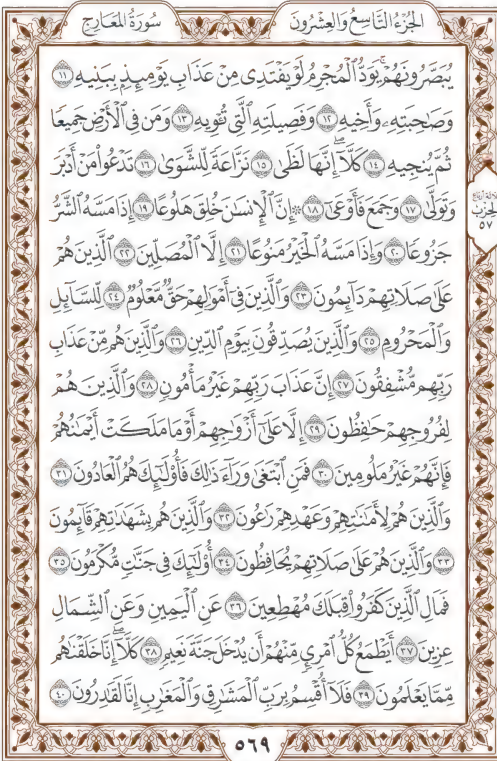 الجُزْءُ التَّاسِعُ وَالعِشْرُونَ
سُورَةُ المَعَارِجِ
يُبَصَّرُونَهُمْۚ يَوَدُّ ٱلْمُجْرِمُ لَوْ يَفْتَدِى مِنْ عَذَابِ يَوْمِئِذٍۭ بِبَنِيهِ ١١
وَصَٰحِبَتِهِۦ وَأَخِيهِ ١٢ وَفَصِيلَتِهِ ٱلَّتِى تُـْٔوِيهِ ١٣ وَمَن فِى ٱلْأَرْضِ جَمِيعًا
ثُمَّ يُنجِيهِ ١٤ كَلَّآۖ إِنَّهَا لَظَىٰ ١٥ نَزَّاعَةً لِّلشَّوَىٰ ١٦ تَدْعُوا۟ مَنْ أَدْبَرَ
وَتَوَلَّىٰ ١٧ وَجَمَعَ فَأَوْعَىٰٓ ١٨ ۞ إِنَّ ٱلْإِنسَٰنَ خُلِقَ هَلُوعًا ١٩ إِذَا مَسَّهُ ٱلشَّرُّ
جَزُوعًا ٢٠ وَإِذَا مَسَّهُ ٱلْخَيْرُ مَنُوعًا ٢١ إِلَّا ٱلْمُصَلِّينَ ٢٢ ٱلَّذِينَ هُمْ
عَلَىٰ صَلَاتِهِمْ دَآئِمُونَ ٢٣ وَٱلَّذِينَ فِىٓ أَمْوَٰلِهِمْ حَقٌّ مَّعْلُومٌ ٢٤ لِّلسَّآئِلِ
وَٱلْمَحْرُومِ ٢٥ وَٱلَّذِينَ يُصَدِّقُونَ بِيَوْمِ ٱلدِّينِ ٢٦ وَٱلَّذِينَ هُم مِّنْ عَذَابِ
رَبِّهِم مُّشْفِقُونَ ٢٧ إِنَّ عَذَابَ رَبِّهِمْ غَيْرُ مَأْمُونٍ ٢٨ وَٱلَّذِينَ هُمْ
لِفُرُوجِهِمْ حَٰفِظُونَ ٢٩ إِلَّا عَلَىٰٓ أَزْوَٰجِهِمْ أَوْ مَا مَلَكَتْ أَيْمَٰنُهُمْ
فَإِنَّهُمْ غَيْرُ مَلُومِينَ ٣٠ فَمَنِ ٱبْتَغَىٰ وَرَآءَ ذَٰلِكَ فَأُو۟لَٰٓئِكَ هُمُ ٱلْعَادُونَ ٣١
وَٱلَّذِينَ هُمْ لِأَمَٰنَٰتِهِمْ وَعَهْدِهِمْ رَٰعُونَ ٣٢ وَٱلَّذِينَ هُم بِشَهَٰدَٰتِهِمْ قَآئِمُونَ
٣٣ وَٱلَّذِينَ هُمْ عَلَىٰ صَلَاتِهِمْ يُحَافِظُونَ ٣٤ أُو۟لَٰٓئِكَ فِى جَنَّٰتٍ مُّكْرَمُونَ ٣٥
فَمَالِ ٱلَّذِينَ كَفَرُوا۟ قِبَلَكَ مُهْطِعِينَ ٣٦ عَنِ ٱلْيَمِينِ وَعَنِ ٱلشِّمَالِ
عِزِينَ ٣٧ أَيَطْمَعُ كُلُّ ٱمْرِئٍ مِّنْهُمْ أَن يُدْخَلَ جَنَّةَ نَعِيمٍ ٣٨ كَلَّآۖ إِنَّا خَلَقْنَٰهُم
مِّمَّا يَعْلَمُونَ ٣٩ فَلَآ أُقْسِمُ بِرَبِّ ٱلْمَشَٰرِقِ وَٱلْمَغَٰرِبِ إِنَّا لَقَٰدِرُونَ ٤٠
ثلاثة أرباع
الحزب
٥٧
٥٦٩